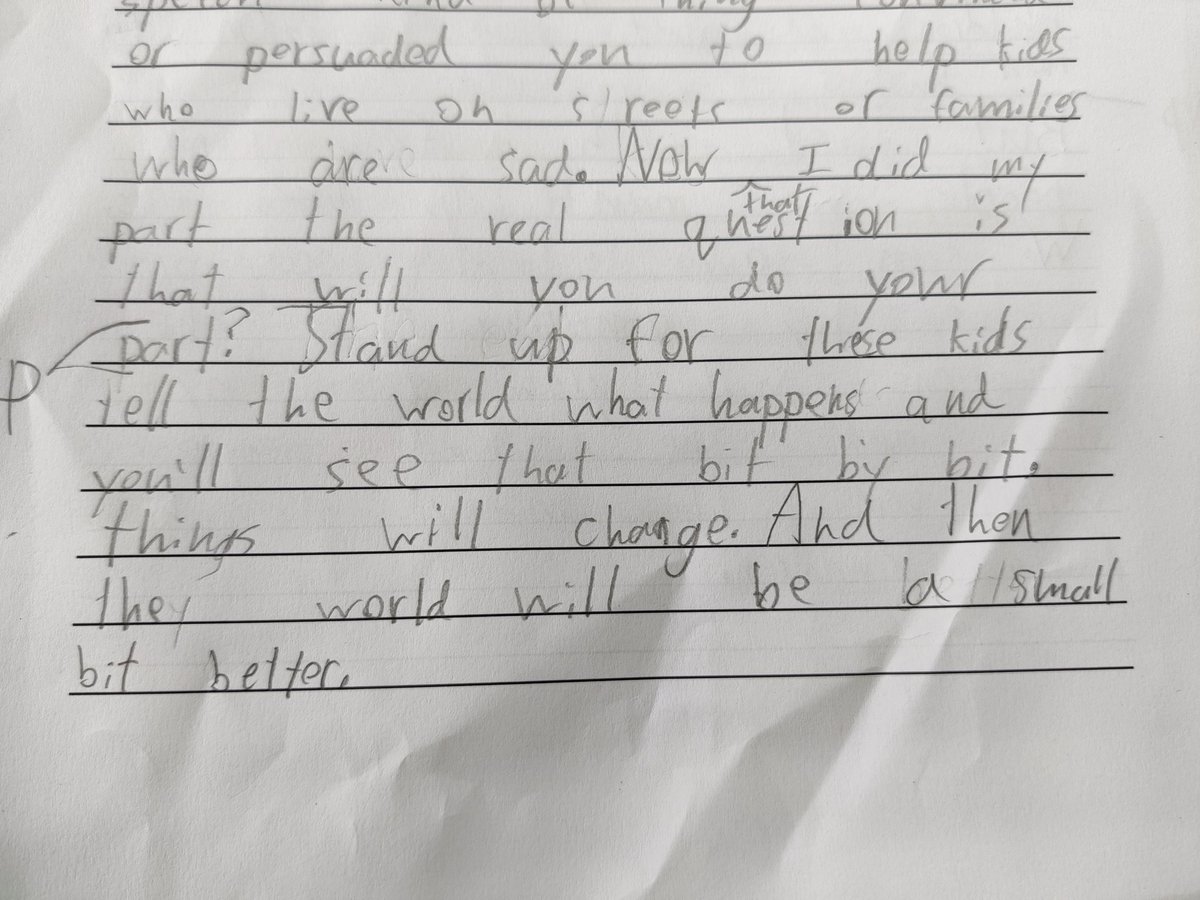 or persuaded you to help kids
who live on streets or families
who are sad. Now I did my
that
part the real question is
that will you do your
P part? Stand up for these kids
tell the world what happens and
you'll see that bit by bit,
things will change. And then
they world will be a small
bit better.